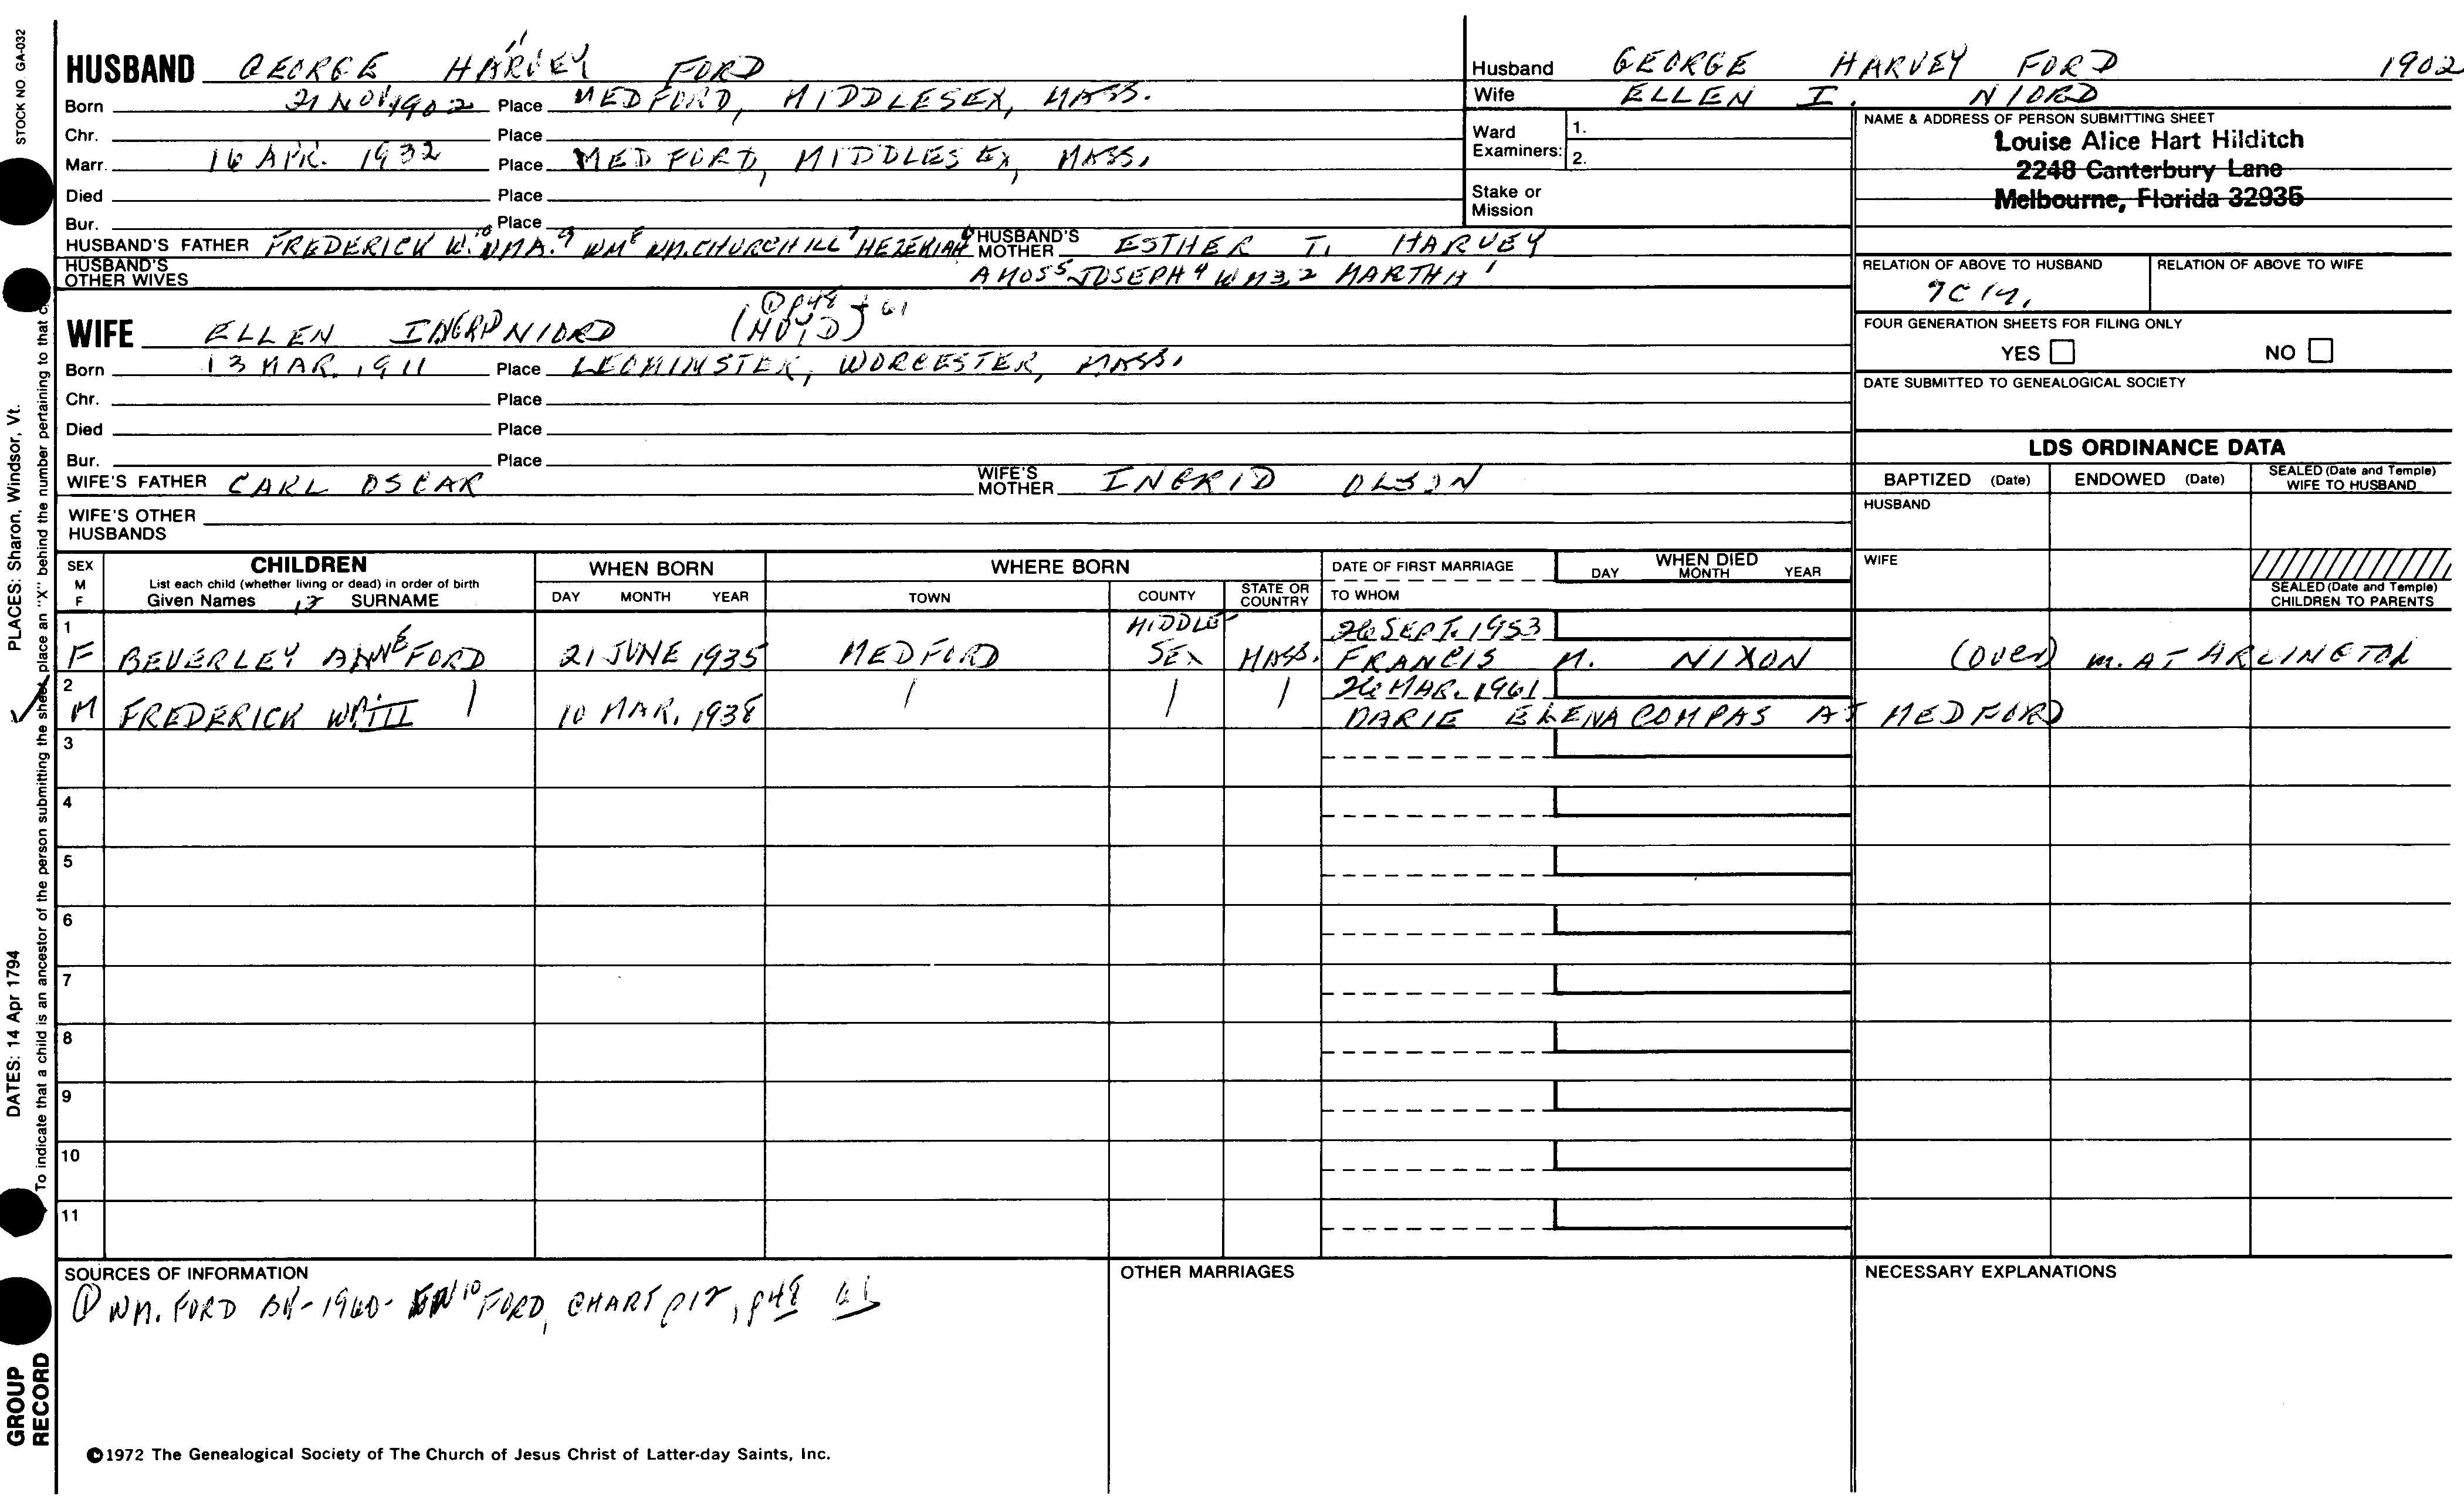 STOCK NO GA-032
PLACES: Sharon, Windsor, Vt.
DATES: 14 Apr 1794
To indicate that a child is an ancestor of the person submitting the sheet, place an "X" behind the number pertaining to that c
GROUP RECORD
HUSBAND GEORGE HARVEY FORD
11
Born 21 NOV 1902 Place MEDFORD, MIDDLESEX, MASS.
Chr. Place
Marr. 16 APR. 1932 Place MEDFORD, MIDDLESEX, MASS.
Died Place
Bur. Place
HUSBAND'S FATHER FREDERICK W.10 WM A.9 WM8 WM. CHURCHILL7 HEZEKIAH6 HUSBAND'S MOTHER ESTHER T. HARVEY
HUSBAND'S OTHER WIVES AMOS5 JOSEPH4 WM3,2 MARTHA1
① p48 + 61
WIFE ELLEN INGRID NIORD
Born 13 MAR. 1911 Place LEOMINSTER, WORCESTER, MASS.
Chr. Place
Died Place
Bur. Place
WIFE'S FATHER CARL OSCAR WIFE'S MOTHER INGRID OLSON
WIFE'S OTHER HUSBANDS
Husband GEORGE HARVEY FORD 1902
Wife ELLEN I. NIORD
Ward Examiners: 1.
2.
Stake or Mission
NAME & ADDRESS OF PERSON SUBMITTING SHEET
Louise Alice Hart Hilditch
2248 Canterbury Lane
Melbourne, Florida 32935
RELATION OF ABOVE TO HUSBAND RELATION OF ABOVE TO WIFE
FOUR GENERATION SHEETS FOR FILING ONLY
YES NO
DATE SUBMITTED TO GENEALOGICAL SOCIETY
LDS ORDINANCE DATA
BAPTIZED (Date) ENDOWED (Date) SEALED (Date and Temple) WIFE TO HUSBAND
HUSBAND
WIFE
SEALED (Date and Temple) CHILDREN TO PARENTS
SEX M F
CHILDREN
List each child (whether living or dead) in order of birth
Given Names 12 SURNAME
WHEN BORN
DAY MONTH YEAR
WHERE BORN
TOWN COUNTY STATE OR COUNTRY
DATE OF FIRST MARRIAGE
TO WHOM
WHEN DIED
DAY MONTH YEAR
1 F BEVERLEY ANNE FORD 21 JUNE 1935 MEDFORD MIDDLESEX MASS. 26 SEPT. 1953
FRANCIS M. NIXON (OVER) m. AT ARLINGTON
2 M FREDERICK WM III 10 MAR. 1938 26 MAR. 1961
MARIE ELENA COMPAS AT MEDFORD
3
4
5
6
7
8
9
10
11
SOURCES OF INFORMATION
① WM. FORD BK-1960- FORD, CHART p12, p48 61
OTHER MARRIAGES
NECESSARY EXPLANATIONS
©1972 The Genealogical Society of The Church of Jesus Christ of Latter-day Saints, Inc.